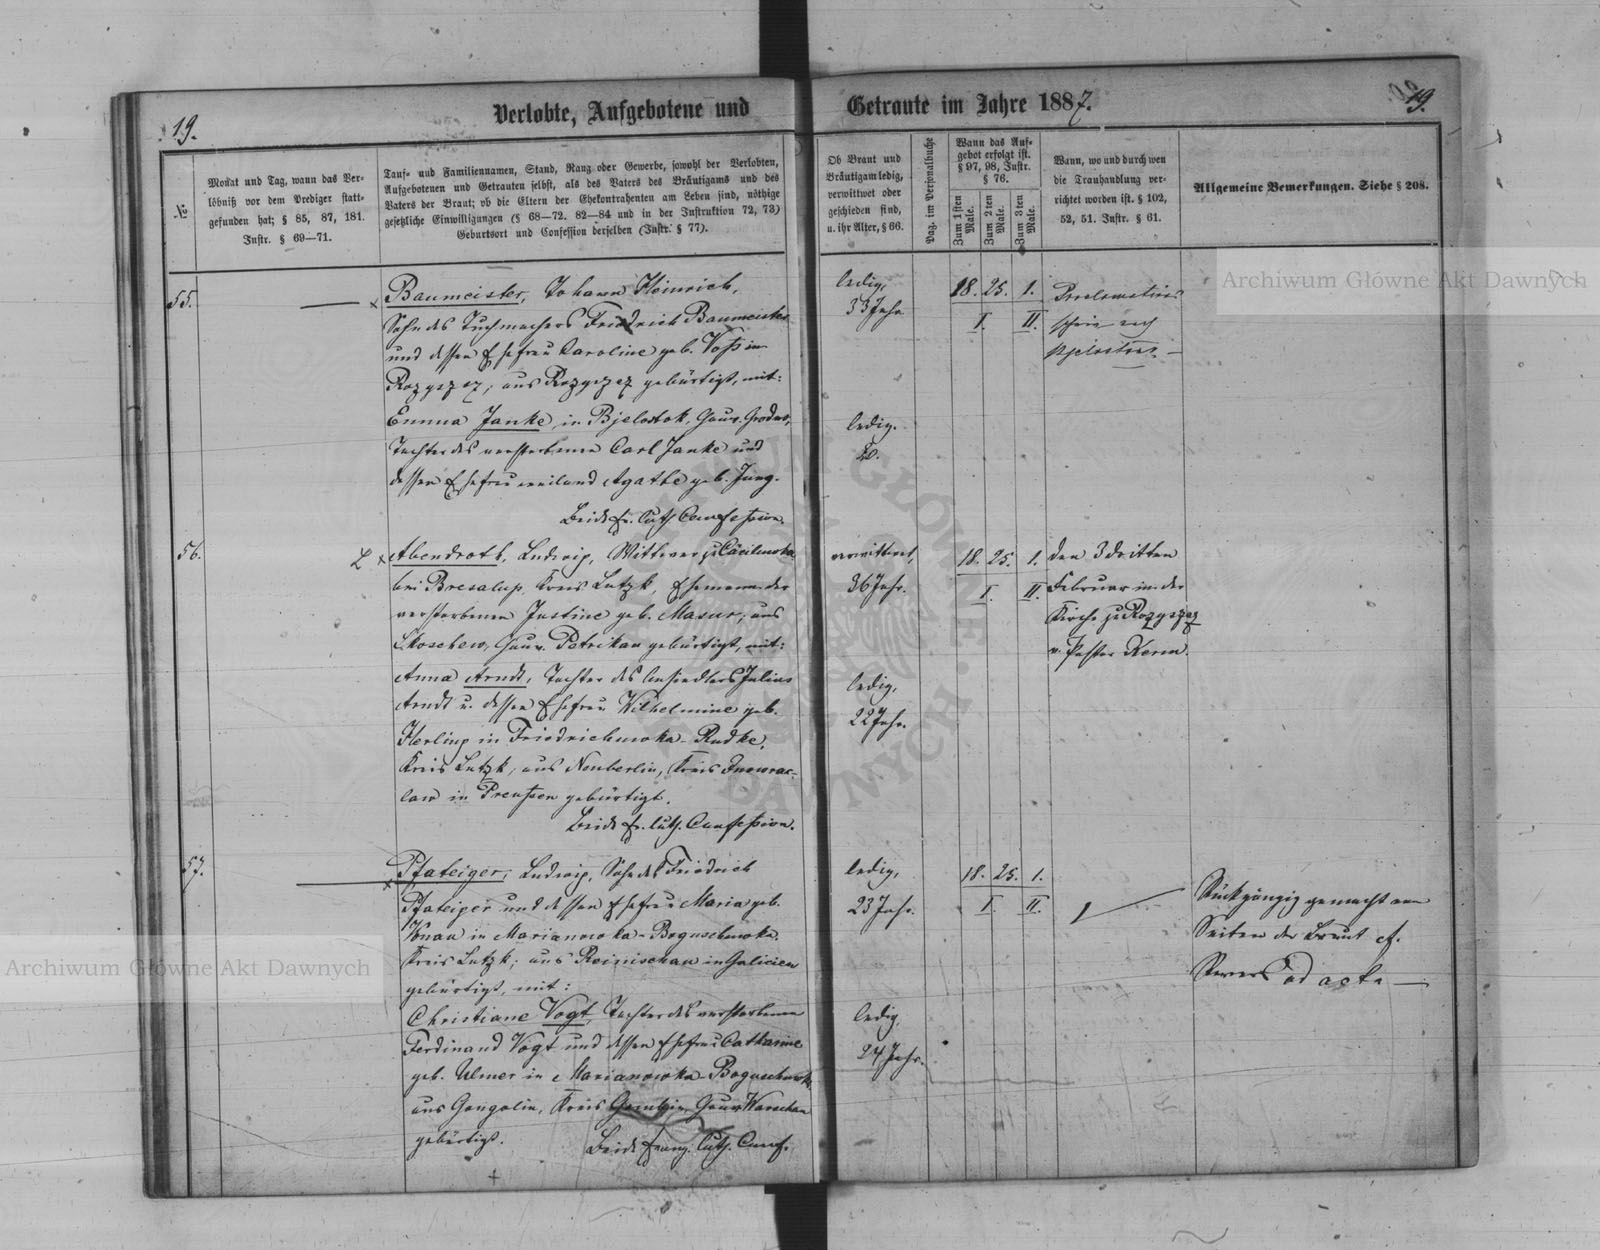 19.
Verlobte, Aufgebotene und
Getraute im Jahre 1887.
19.
№
Monat und Tag, wann das Ver-
löbniß vor dem Prediger statt-
gefunden hat; § 85, 87, 181.
Instr. § 69—71.
Tauf- und Familiennamen, Stand, Rang oder Gewerbe, sowohl der Verlobten,
Aufgebotenen und Getrauten selbst, als des Vaters des Bräutigams und des
Vaters der Braut; ob die Eltern der Ehekontrahenten am Leben sind, nöthige
gesetzliche Einwilligungen (§ 68—72. 82—84 und in der Instruktion 72, 73)
Geburtsort und Confession derselben (Instr. § 77).
Ob Braut und
Bräutigam ledig,
verwittwet oder
geschieden sind,
u. ihr Alter, § 66.
Pag. im Personalbuche
Wann das Auf-
gebot erfolgt ist.
§ 97, 98, Instr.
§ 76.
Zum 1sten Male.
Zum 2ten Male.
Zum 3ten Male.
Wann, wo und durch wen
die Trauhandlung ver-
richtet worden ist. § 102,
52, 51. Instr. § 61.
Allgemeine Bemerkungen. Siehe § 208.
55.
Baumeister, Johann Heinrich,
Sohn des Tuchmachers Friedrich Baumeister
und dessen Ehefrau Caroline geb. Voß in
Rozyszcz, aus Rozyszcz gebürtigt, mit:
Emma Janke, in Bjelostok, Gouv. Grodno,
Tochter des verstorbenen Carl Janke und
dessen Ehefrau weiland Agathe geb. Jung.
Beide Ev. Luth. Confession.
ledig,
33 Jahr.
ledig.
18. 25. 1.
I. II.
Proclamations
schein nach
Bjelostok. —
56.
Abendroth, Ludwig, Wittwer zu Cäcilinowka
bei Kreis Lutzk, Ehemann der
verstorbenen Justine geb. Masur, aus
Gouv. Petrikau gebürtigt, mit:
Anna Arndt, Tochter des Ansiedlers Julius
Arndt u. dessen Ehefrau Wilhelmine geb.
Herling in Friedrichuwka-Rudke,
Kreis Lutzk, aus Neuberlin, Kreis Inowrac-
law in Preußen gebürtigt.
Beide Ev. luth. Confession.
verwittwet,
36 Jahr.
ledig,
22 Jahr.
18. 25. 1.
I. II.
den 3 dritten
Februar in der
Kirche zu Rozyszcz
v. Pastor Kerm.
57.
Pfateiger, Ludwig, Sohn des Friedrich
Pfateiger und dessen Ehefrau Maria geb.
in Marianowka-Boguschuwka,
Kreis Lutzk, aus in Galicien
gebürtigt, mit:
Christiane Vogt, Tochter des verstorbenen
Ferdinand Vogt und dessen Ehefrau Catharine
geb. Ulmer in Marianowka-Boguschuwka
aus Gongolin, Kreis Gouv. Warschau
gebürtigt.
Beide Evang. Luth. Conf.
ledig,
23 Jahr.
ledig,
24 Jahr.
18. 25. 1.
I. II.
Rückgängig gemacht von
Seiten der Braut cf.
Revers ad acta —
Archiwum Główne Akt Dawnych
Archiwum Główne Akt Dawnych